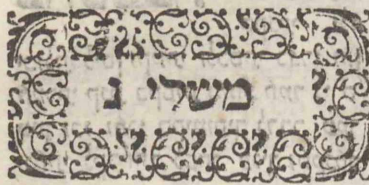 משלי נ